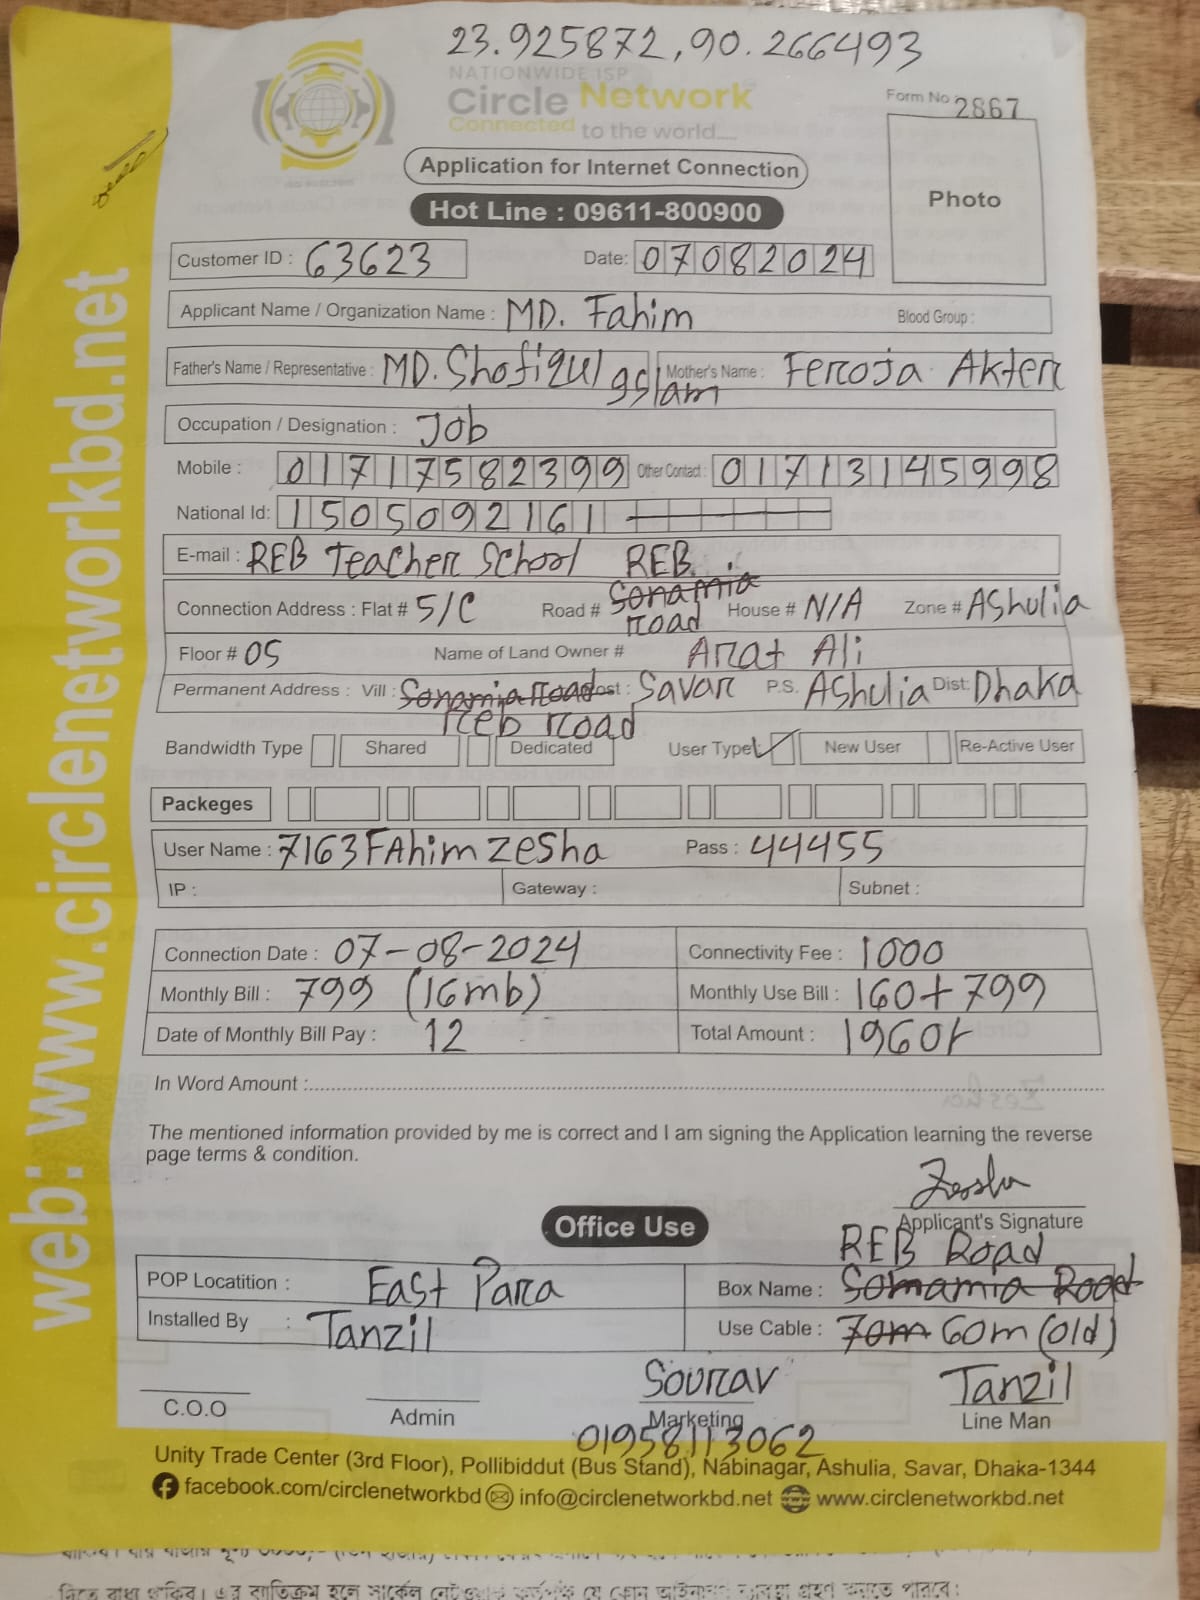 23.925872,90.266493
NATIONWIDE ISP
Circle Network
Connected to the world....
Form No. 2867
Application for Internet Connection
Photo
Hot Line : 09611-800900
Customer ID : 63623 Date: 07082024
Applicant Name / Organization Name : MD. Fahim Blood Group :
Father's Name / Representative : MD. Shofiqul gslam Mother's Name : Feroja Akter
Occupation / Designation : Job
Mobile : 01717582399 Other Contact : 01713145998
National Id: 1505092161
E-mail : REB Teacher School REB
Connection Address : Flat # 5/C Road # Sonamia road House # N/A Zone # Ashulia
Floor # 05 Name of Land Owner # Arat Ali
Permanent Address : Vill : Sonamia road Post : Savar P.S. Ashulia Dist: Dhaka
Reb road
Bandwidth Type Shared Dedicated User Type New User Re-Active User
Packeges
User Name : 7163FAhimzesha Pass : 44455
IP : Gateway : Subnet :
Connection Date : 07-08-2024 Connectivity Fee : 1000
Monthly Bill : 799 (16mb) Monthly Use Bill : 160+799
Date of Monthly Bill Pay : 12 Total Amount : 1960/-
In Word Amount :
The mentioned information provided by me is correct and I am signing the Application learning the reverse
page terms & condition.
Zesha
Applicant's Signature
Office Use
REB Road
POP Locatition : East Para Box Name : Somamia Road
Installed By : Tanzil Use Cable : 70m 60m (old)
Sourav Tanzil
C.O.O Admin Marketing Line Man
01958113062
Unity Trade Center (3rd Floor), Pollibiddut (Bus Stand), Nabinagar, Ashulia, Savar, Dhaka-1344
facebook.com/circlenetworkbd info@circlenetworkbd.net www.circlenetworkbd.net
web: www.circlenetworkbd.net